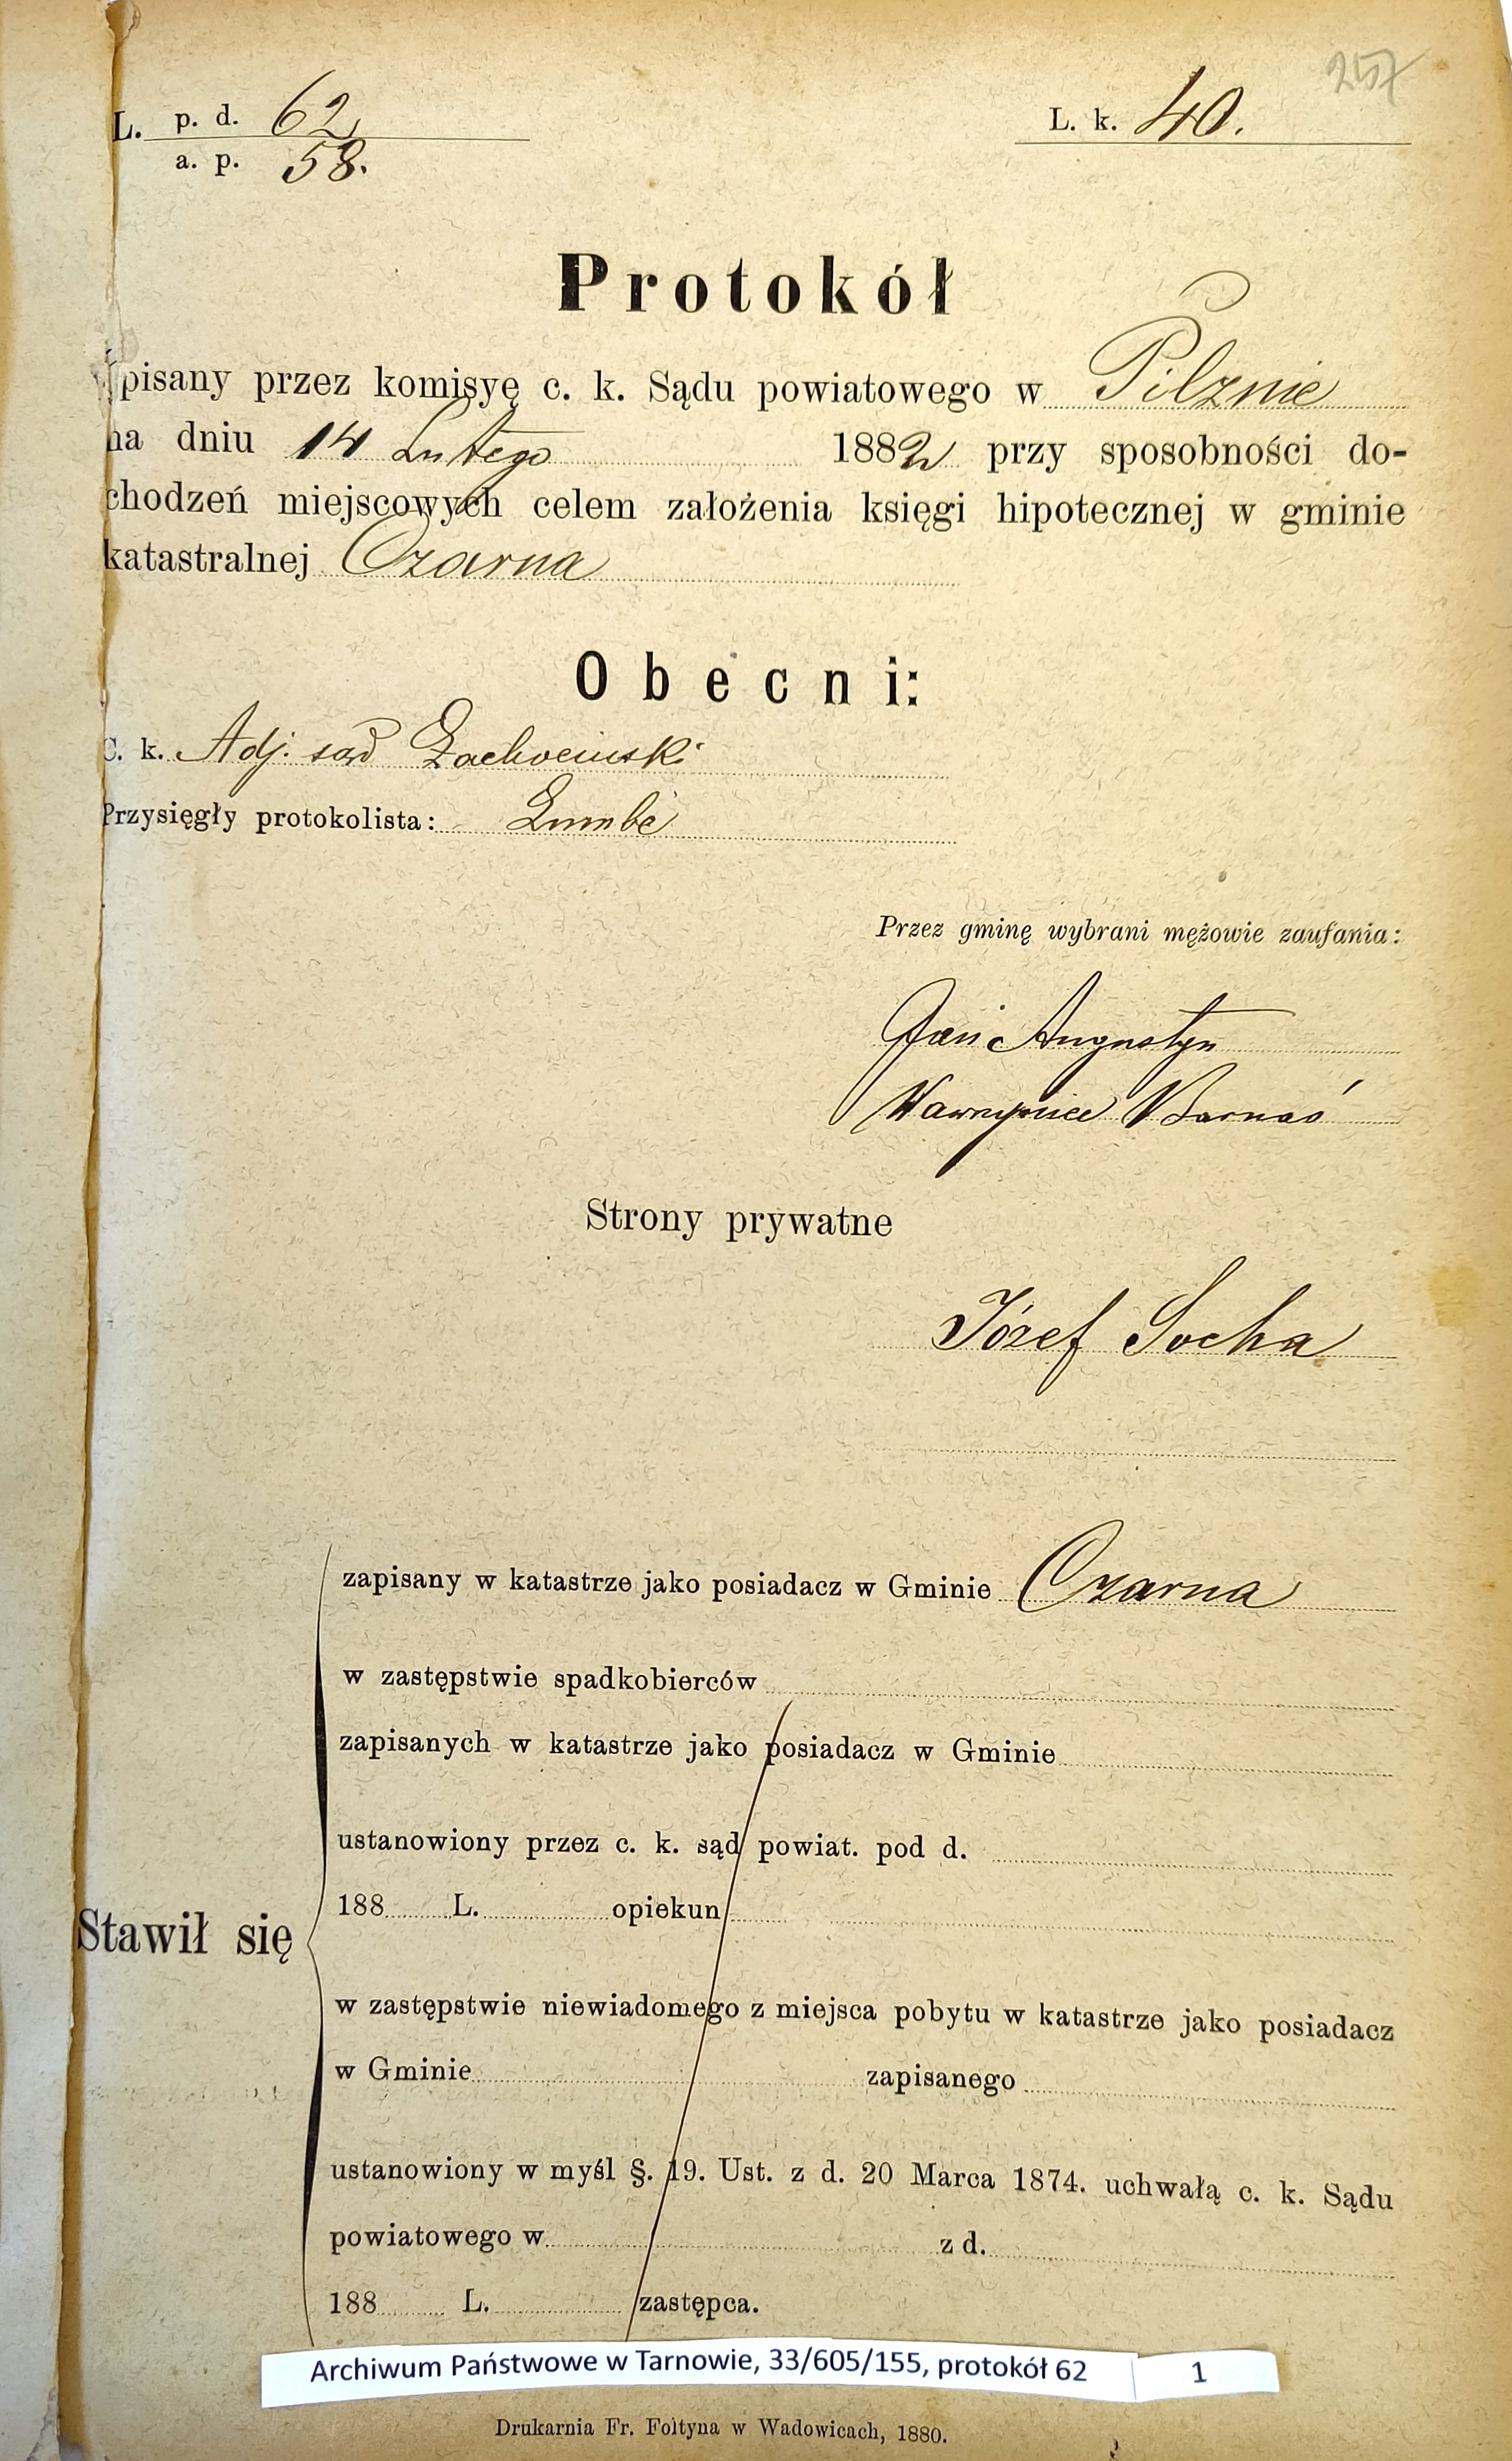 257
L. p. d. 62
a. p. 58.
L. k. 40.
Protokół
spisany przez komisyę c. k. Sądu powiatowego w Pilznie
na dniu 14 Lutego 1882 przy sposobności do-
chodzeń miejscowych celem założenia księgi hipotecznej w gminie
katastralnej Czarna
Obecni:
C. k. Adj. sąd
Przysięgły protokolista:
Przez gminę wybrani mężowie zaufania:
Jan Augustyn
Wawrzyniec Barnaś
Strony prywatne
Józef Socha
zapisany w katastrze jako posiadacz w Gminie Czarna
w zastępstwie spadkobierców
zapisanych w katastrze jako posiadacz w Gminie
ustanowiony przez c. k. sąd powiat. pod d.
188 L. opiekun
Stawił się
w zastępstwie niewiadomego z miejsca pobytu w katastrze jako posiadacz
w Gminie zapisanego
ustanowiony w myśl §. 19. Ust. z d. 20 Marca 1874. uchwałą c. k. Sądu
powiatowego w z d.
188 L. zastępca.
Archiwum Państwowe w Tarnowie, 33/605/155, protokół 62 1
Drukarnia Fr. Foltyna w Wadowicach, 1880.